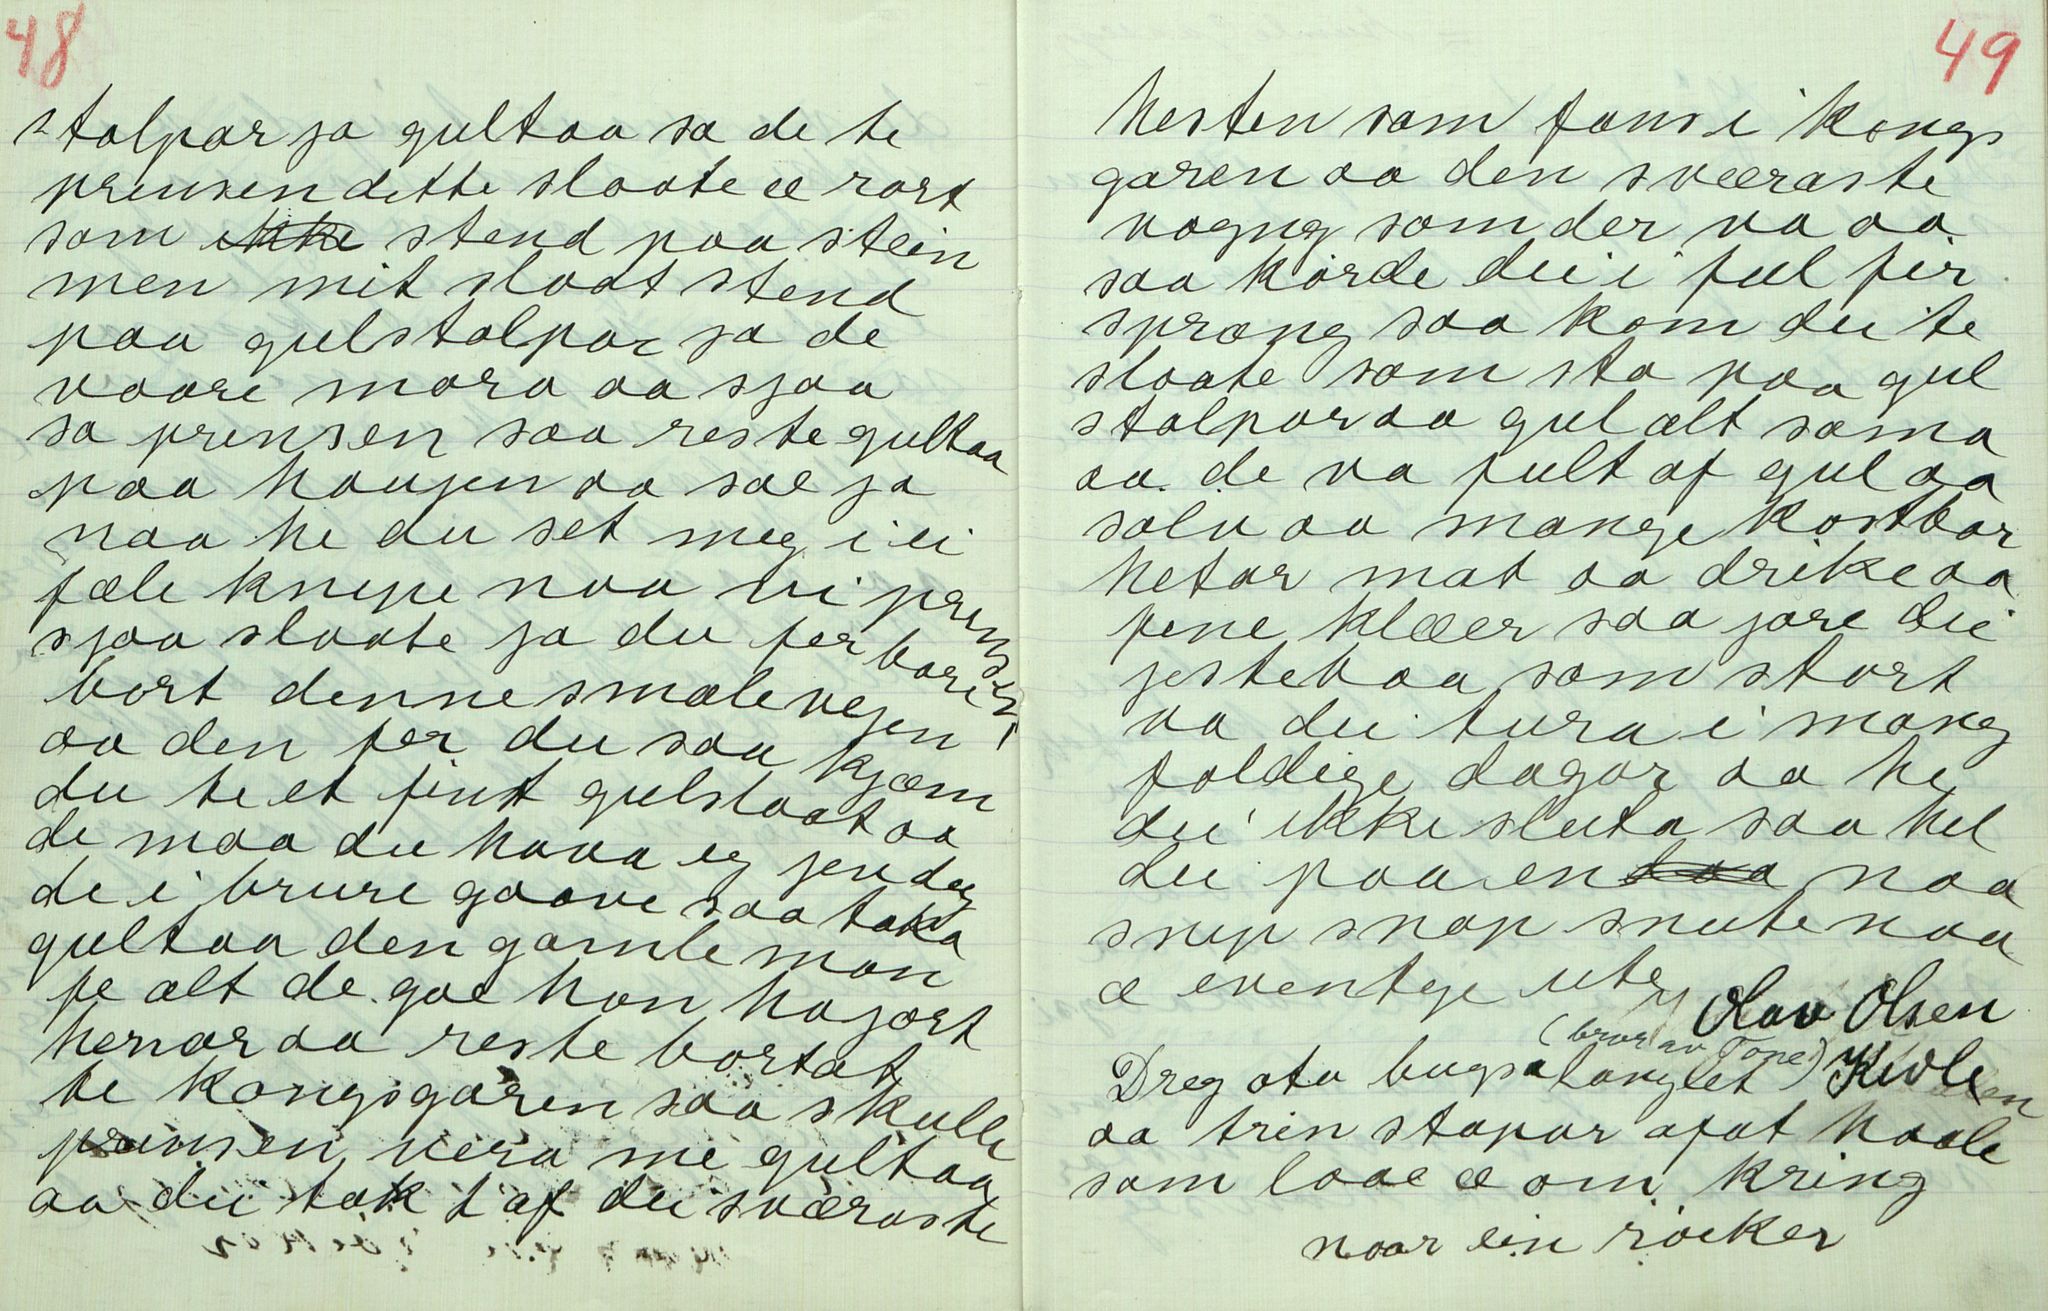 48
stolpar ja gultaa sa de te
prensen dette sloote æ rart
som ikke stend paa stein
men mit sloot stend
paa gulstolpar ja de
vaare mora aa sjaa
sa prensen saa reste gultaa
paa haujen aa sae ja
naa he du set meg i ei
fæle knipe naa vi prensen
sjaa sloote ja du fer bare
bort denne smale vejen
aa den fer du saa kjæm
du te et fint gulsloot aa
de maa du hava eg jen deg
de i brure gaave saa taka
gultaa den gamle man
fe alt de gae han ha jort
henar aa reste bortat
te kongsgaren saa skulle
prensen vera me gultaa
aa dei tok t af dei sværaste
49
hesten som fans i kongs
garen aa den sværaste
vogng som der va aa
saa körde dei i ful fir
spræng saa kom dei te
sloote som sto paa gul
stolpar aa gul alt sama
aa de va fult af gul aa
solv aa mange kostbar
hetar mat aa drike aa
pene klæer saa jore dei
jestebaa som stort
va dei tura i mang
foldige dagar aa he
dei ikke sluta saa hel
dei paa en naa
snip snap snute naa
æ eventye ute
Olav Olsen
(bror av Tone) Kivle
Dreg ota bugsalonglet en
aa trin stapar afat haale
som looe æ om kring
naar ein röeker